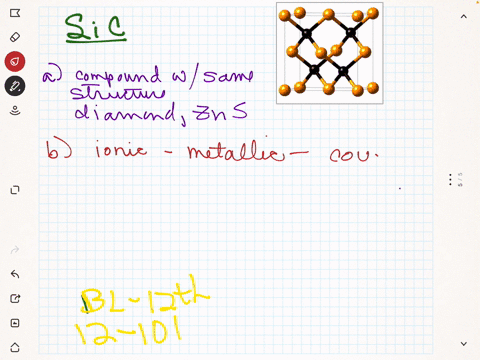 SiC
a) compound w/ same
structure
diamond, ZnS
b) ionic - metallic - cov.
BL-12th
12-101
5 / 5